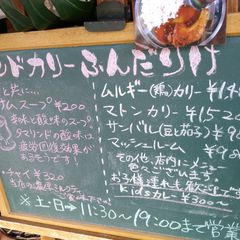 ドカリーふんだりけ
と共に…
スープ ¥200
辛味と酸味のスープ。
タマリンドの酸味は
疲労回復効果が
あるそうです!
・チャイ ¥320
ムルギー(鶏)カリー ¥14
マトンカリー ¥1520
サンバル(豆と茄子) ¥9
マッシュルーム ¥98
その他、店内にメニュー
色々ございます。
お子様連れも歓迎です
kidsカレー ¥300〜
※土・日→11:30〜19:00まで営業